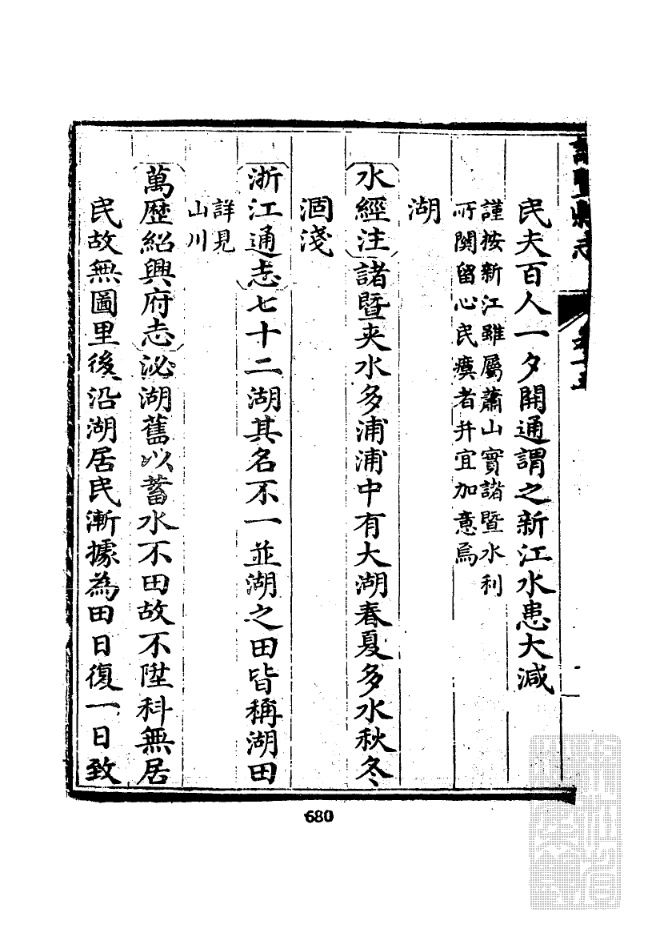 諸暨縣志
民夫百人一夕開通謂之新江水患大減
謹按新江雖屬蕭山實諸暨水利
所關留心民瘼者并宜加意焉
湖
水經注諸暨夾水多浦浦中有大湖春夏多水秋冬
涸淺
浙江通志七十二湖其名不一並湖之田皆稱湖田
詳見
山川
萬歷紹興府志泌湖舊以蓄水不田故不陞科無居
民故無圖里後沿湖居民漸據為田日復一日致
680